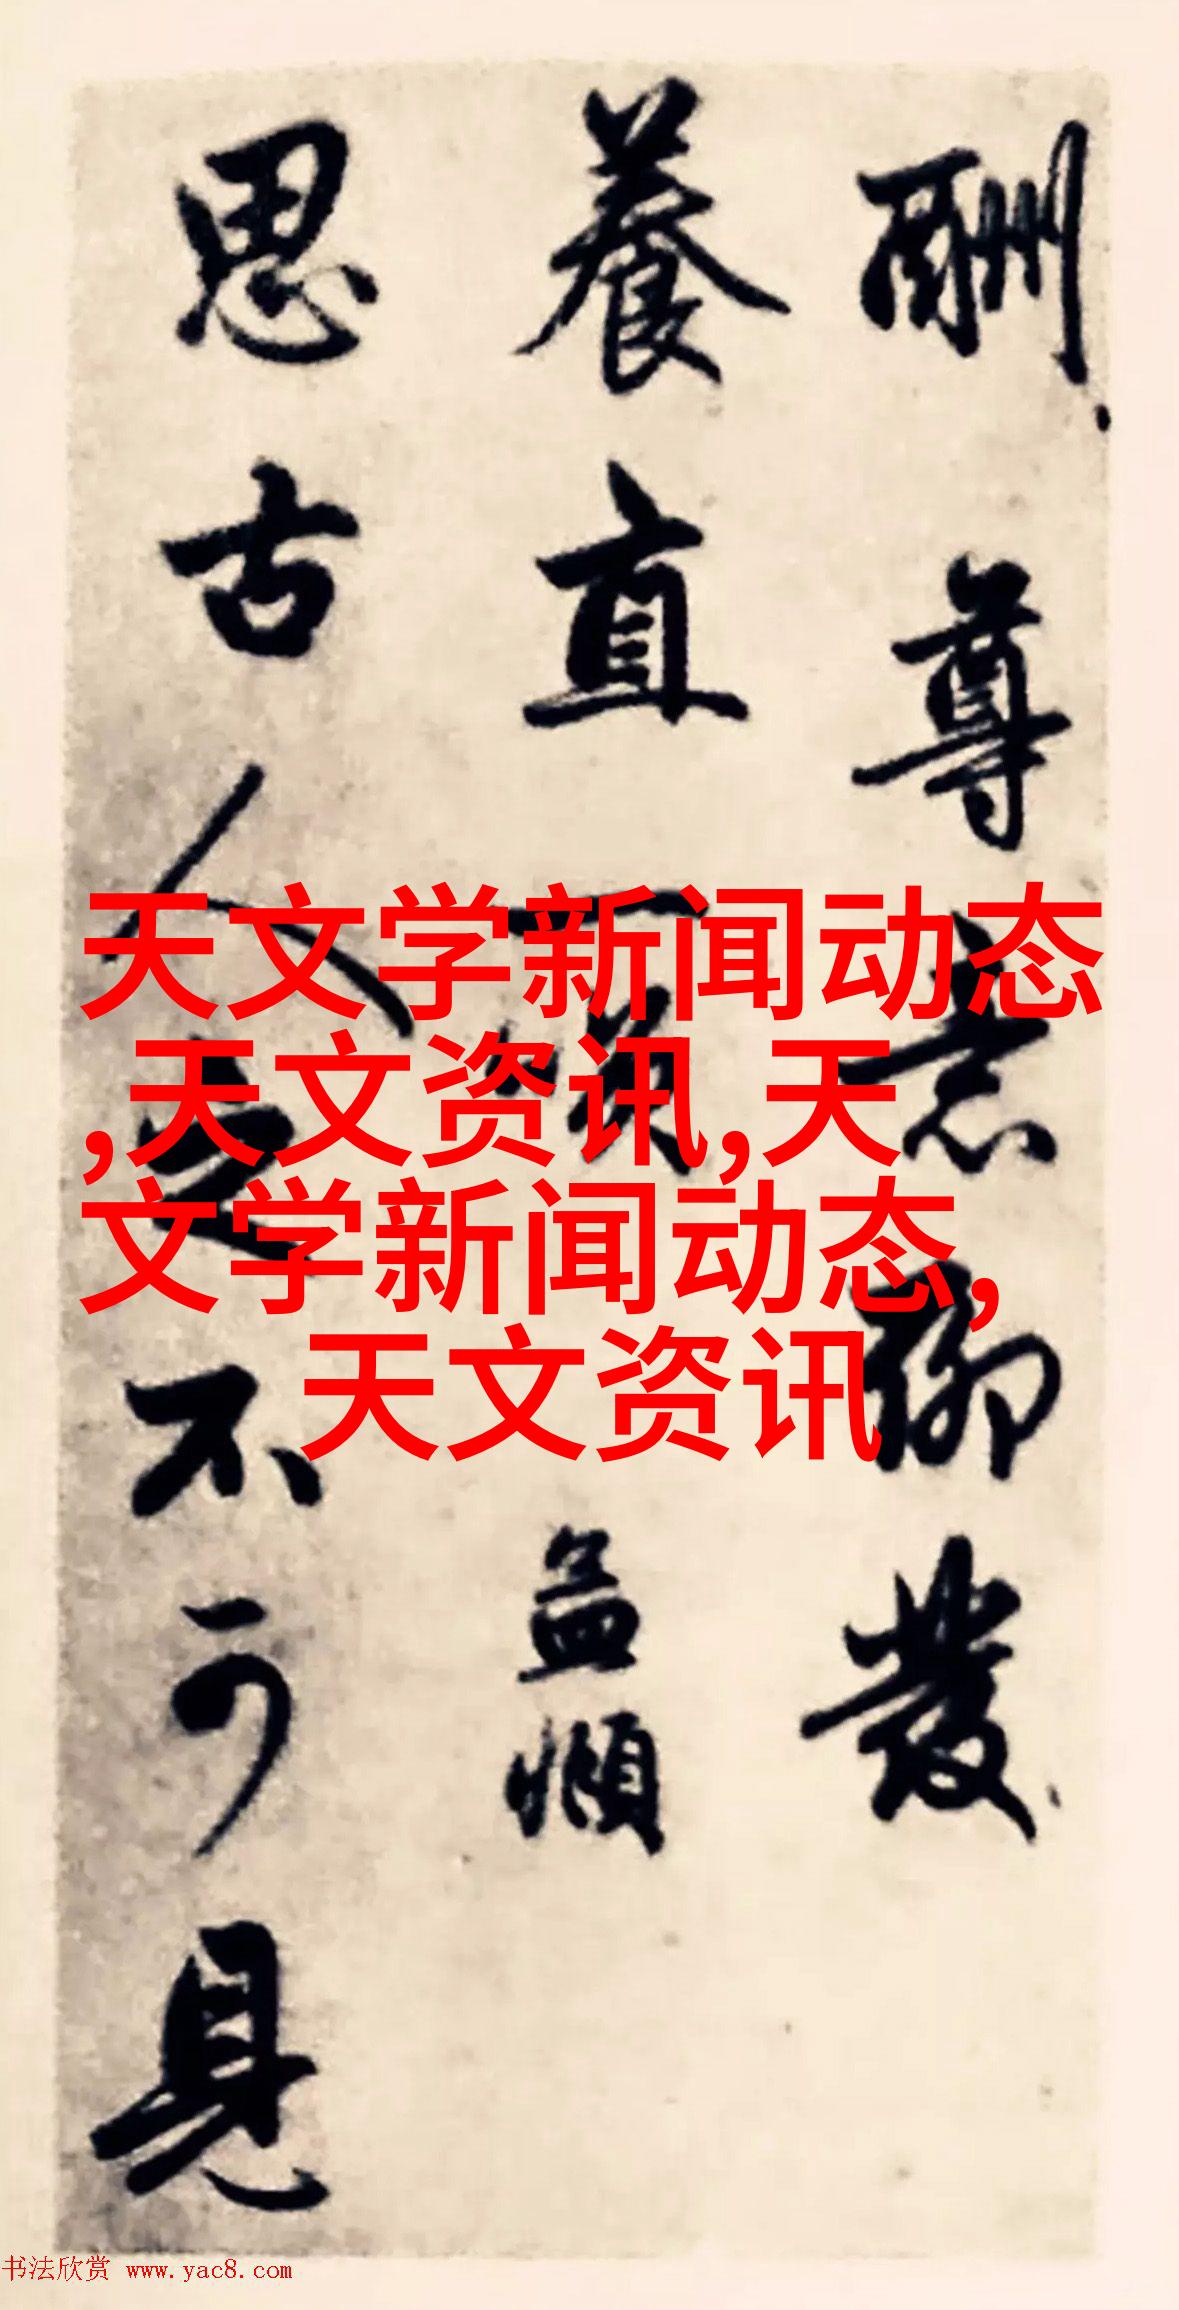 天文学新闻动态
,天文资讯,天
文学新闻动态,
天文资讯
酬尊意聊發
養直一 孟頫
思古人之不可見
书法欣赏 www.yac8.com